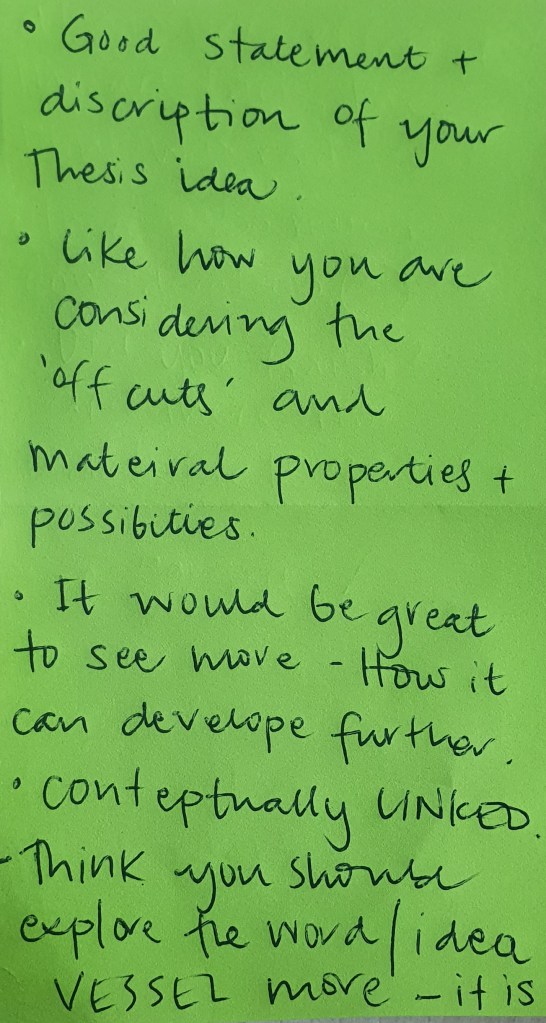 • Good statement +
discription of your
Thesis idea.
• like how you are
considering the
'off cuts' and
mateirval properties +
possibities.
• It would be great
to see more - How it
can develope further.
• conteptually LINKED.
- Think you should
explore the word/idea
VESSEL more - it is